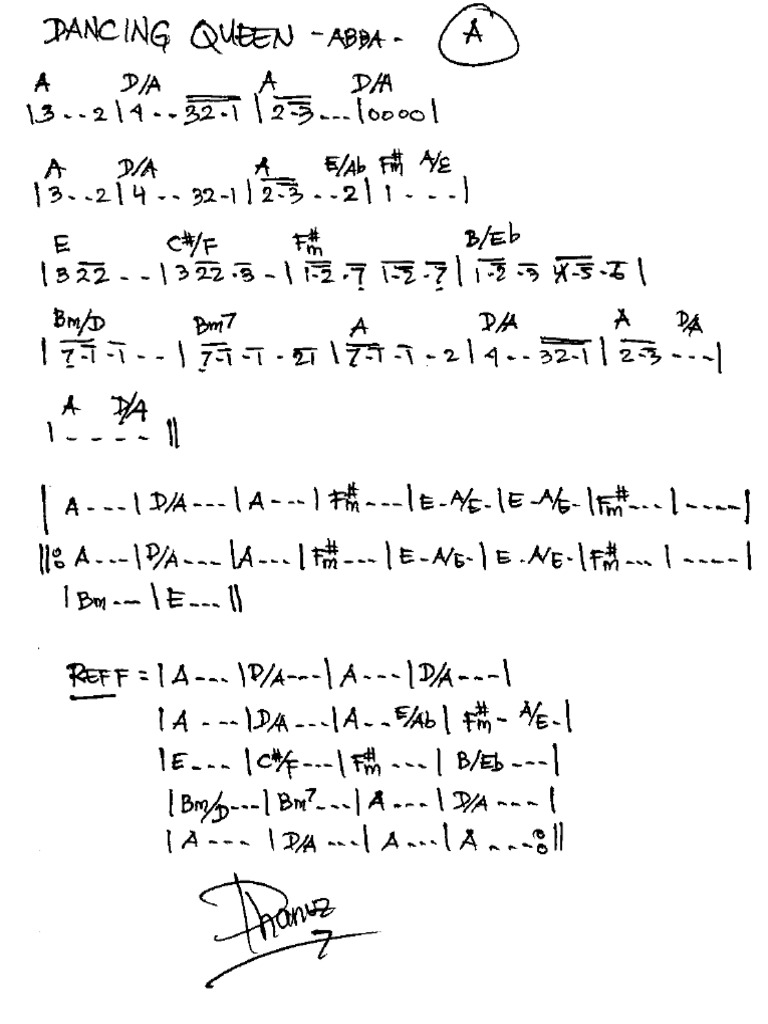 DANCING QUEEN - ABBA - A
A D/A A D/A
|3..2|4..32.1|2.3...|0000|
A D/A A E/Ab F#m A/E
|3..2|4..32-1|2.3..2|1...|
E C#/F F#m B/Eb
|322..|322.3.|1.2.7 1.2.7|1.2.3 4.5.6|
Bm/D Bm7 A D/A A D/A
|7.1.1..|7.1.1.21|7.1.1.2|4..32.1|2.3...|
A D/A
|....||
|A...|D/A...|A...|F#m...|E.A/E.|E.A/E.|F#m...|....|
||:A...|D/A...|A...|F#m...|E.A/E.|E.A/E.|F#m...|....|
|Bm...|E...||
REFF = |A...|D/A...|A...|D/A...|
|A...|D/A...|A..E/Ab|F#m.A/E.|
|E...|C#/F...|F#m...|B/Eb...|
|Bm/D...|Bm7...|A...|D/A...|
|A...|D/A...|A...|A...:||
7